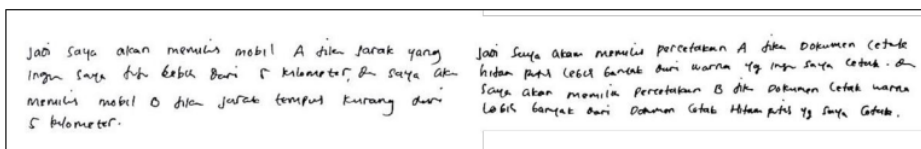 Jadi saya akan memilih mobil A jika jarak yang
ingin saya lebih dari 5 kilometer, dan saya akan
memilih mobil B jika jarak tempuh kurang dari
5 kilometer.
Jadi saya akan memilih percetakan A jika Dokumen Cetak
hitam putih lebih banyak dari warna yg ingin saya Cetak. dan
saya akan memilih percetakan B jika Dokumen Cetak warna
Lebih banyak dari Dokumen Cetak Hitam putih yg saya Cetak.